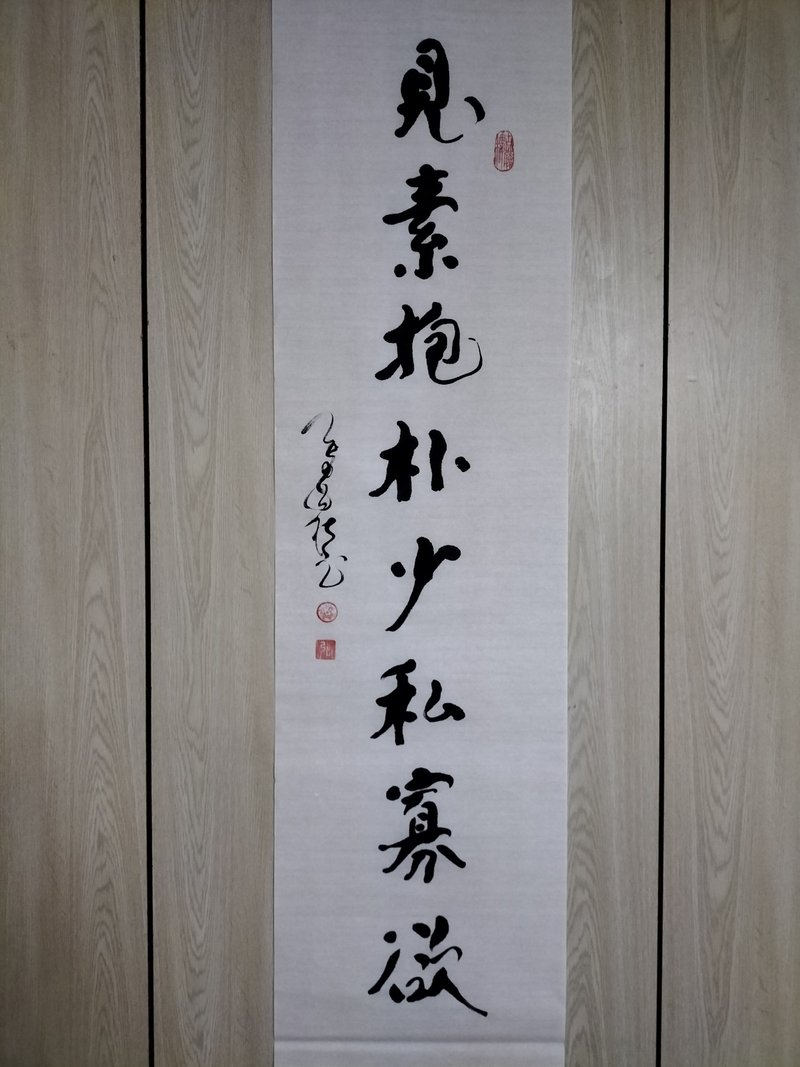 見素抱朴少私寡欲